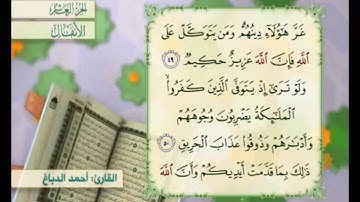 الجزء العاشر
الأنفال
غَرَّ هَٰٓؤُلَآءِ دِينُهُمْ ۗ وَمَن يَتَوَكَّلْ عَلَى
ٱللَّهِ فَإِنَّ ٱللَّهَ عَزِيزٌ حَكِيمٌ ٤٩
وَلَوْ تَرَىٰٓ إِذْ يَتَوَفَّى ٱلَّذِينَ كَفَرُوا۟ ۙ
ٱلْمَلَٰٓئِكَةُ يَضْرِبُونَ وُجُوهَهُمْ
وَأَدْبَٰرَهُمْ وَذُوقُوا۟ عَذَابَ ٱلْحَرِيقِ ٥٠
ذَٰلِكَ بِمَا قَدَّمَتْ أَيْدِيكُمْ وَأَنَّ ٱللَّهَ
القارئ: أحمد الدباغ